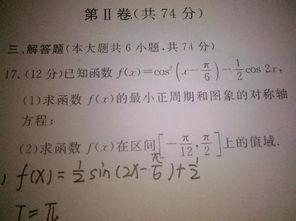 第Ⅱ卷(共 74 分)
三、解答题(本大题共 6 小题,共 74 分)
17.(12 分)已知函数 f(x)=cos²(x-π/6)-1/2 cos 2x,
(1)求函数 f(x)的最小正周期和图象的对称轴
方程;
(2)求函数 f(x)在区间[-π/12,π/2]上的值域.
f(x)=1/2 sin(2x-π/6)+1/2
T=π